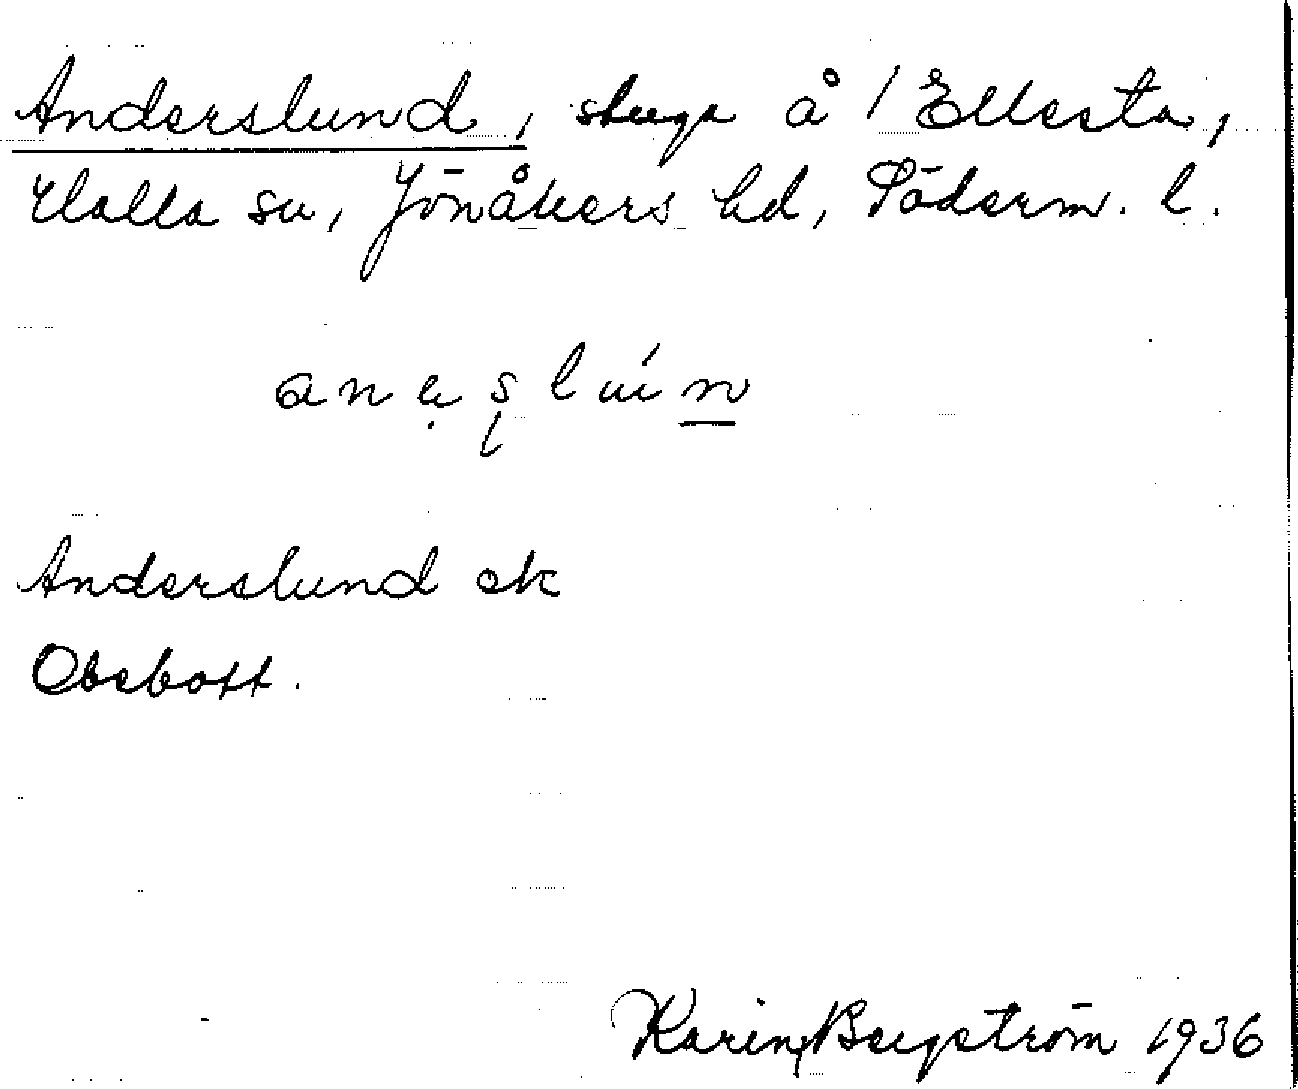 Anderslund, stuga å / Ellesta,
Halla sn, Jönåkers hd, Söderm. l.
anẹșlúṉ
Anderslund ek
Obebott.
Karin Bergström 1936